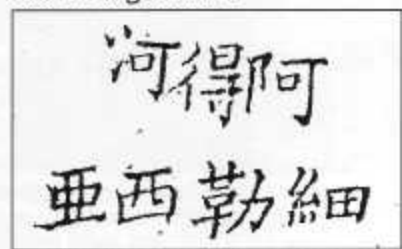 河得阿
亜西勒細